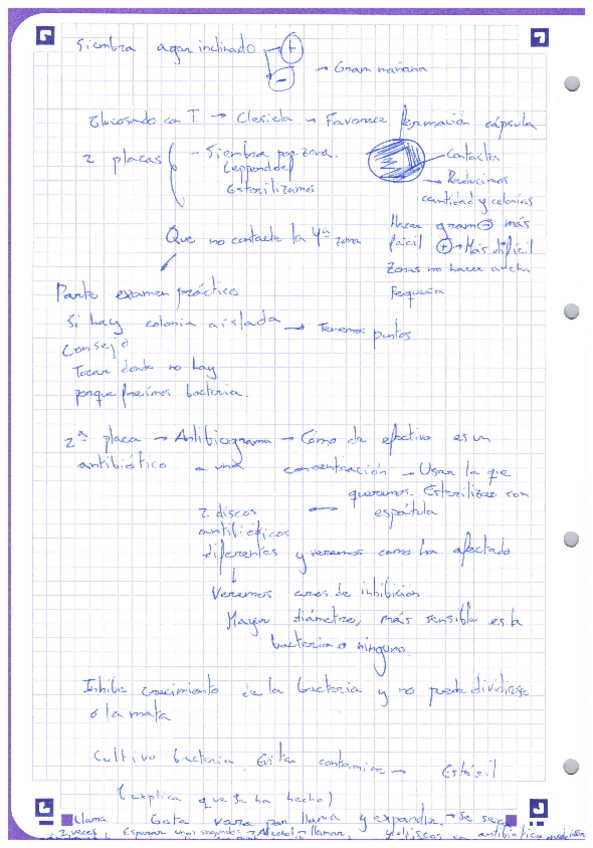 Siembra agar inclinado
+
-
→ Gram mañana
Glucosado con T → Clesiela → Favorece formación cápsula
2 placas
- Siembra por zona.
Esterilizamos
Contacta
→ Reducimos
cantidad y colonias
Que no contacte la 4ª zona
Hacer gram - más
fácil + → Más difícil
Zonas no hacer ancha
Pequeña
Parte examen práctico
Si hay colonia aislada → Tenemos puntos
Consejo
Tocar donde no hay
porque freímos bacteria.
2ª placa → Antibiograma → Cómo de efectivo es un
antibiótico a una concentración → Usar la que
queremos. Esterilizar con
espátula
2 discos
antibióticos
diferentes y veremos como ha afectado
Veremos aros de inhibición
Mayor diámetro, más sensible es la
bacteria o ninguno.
Inhibe crecimiento de la bacteria y no puede dividirse
o la mata
Cultivo bacteria. Evitar contamine → Estéril
(explica que se ha hecho)
Llama Gota vaza por llama y expandir → Se seca
2 veces Esperar unos segundos → Alcohol → llamar, y discos antibiótico